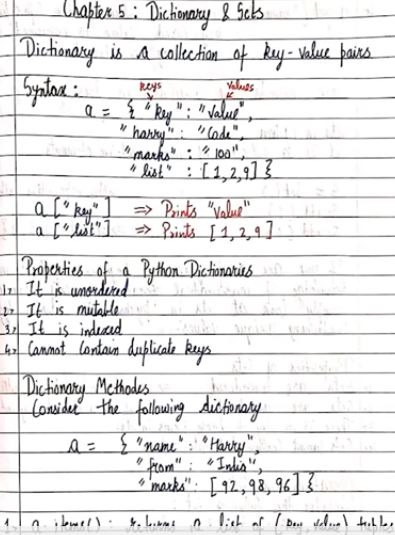 Chapter 5 : Dictionary & Sets
Dictionary is a collection of key-value pairs
Syntax :
keys values
a = { "key" : "value",
"harry" : "Code",
"marks" : "100",
"list" : [1,2,9] }
a ["key"] ⇒ Prints "value"
a ["list"] ⇒ Prints [1,2,9]
Properties of a Python Dictionaries
1> It is unordered
2> It is mutable
3> It is indexed
4> Cannot Contain duplicate keys
Dictionary Methodes
Consider the following dictionary
a = { "name" : "Harry",
"from" : "India",
"marks" : [92, 98, 96] }
1. a.items() : returns a list of (key, value) tuples